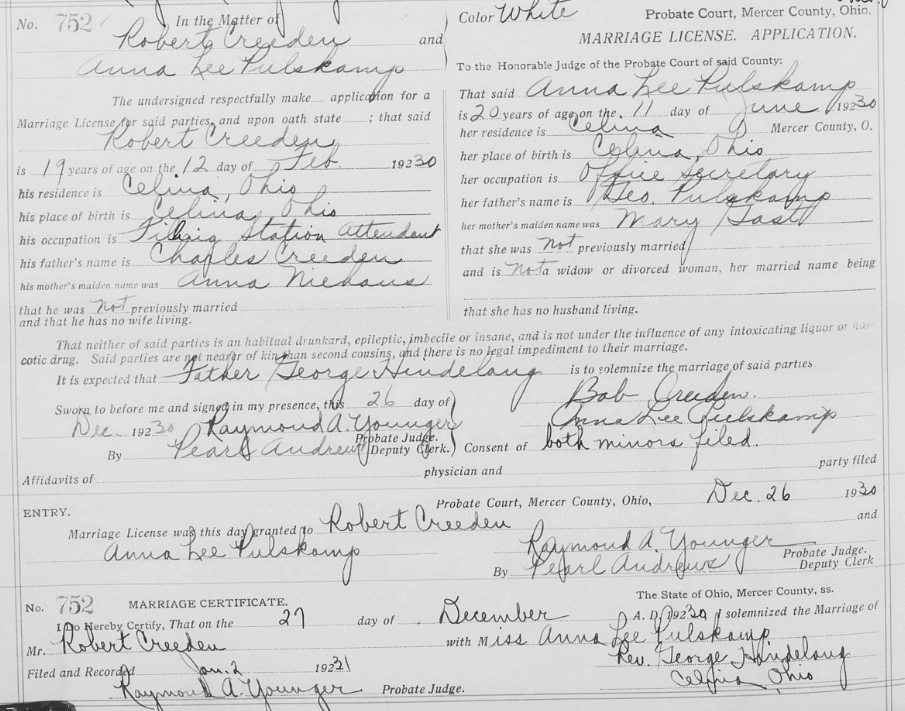 No. 752 In the Matter of
Robert Creeden and
Anna Lee Pulskamp
The undersigned respectfully make application for a
Marriage License for said parties, and upon oath state ; that said
Robert Creeden
is 19 years of age on the 12 day of Feb 19230
his residence is Celina, Ohio
his place of birth is Celina, Ohio
his occupation is Station Attendent
his father's name is Charles Creeden
his mother's maiden name was Anna Niehaus
that he was not previously married
and that he has no wife living.
Color White Probate Court, Mercer County, Ohio.
MARRIAGE LICENSE. APPLICATION.
To the Honorable Judge of the Probate Court of said County:
That said Anna Lee Pulskamp
is 20 years of age on the 11 day of June 19230
her residence is Celina Mercer County, O.
her place of birth is Celina, Ohio
her occupation is Office Secretary
her father's name is Geo. Pulskamp
her mother's maiden name was Mary Gast
that she was not previously married
and is Not a widow or divorced woman, her married name being
that she has no husband living.
That neither of said parties is an habitual drunkard, epileptic, imbecile or insane, and is not under the influence of any intoxicating liquor or nar-
cotic drug. Said parties are not nearer of kin than second cousins, and there is no legal impediment to their marriage.
It is expected that Father George Hindelang is to solemnize the marriage of said parties
Sworn to before me and signed in my presence, this 26 day of
Dec. 19230 Raymond A. Younger
Probate Judge.
By Pearl Andrews Deputy Clerk.
Bob Creeden.
Anna Lee Pulskamp
Consent of both minors filed.
Affidavits of physician and party filed
ENTRY. Probate Court, Mercer County, Ohio, Dec. 26 1930
Marriage License was this day granted to Robert Creeden and
Anna Lee Pulskamp
Raymond A. Younger Probate Judge.
By Pearl Andrews Deputy Clerk
No. 752 MARRIAGE CERTIFICATE. The State of Ohio, Mercer County, ss.
I Do Hereby Certify, That on the 27 day of December A. D. 19230 I solemnized the Marriage of
Mr. Robert Creeden with Miss Anna Lee Pulskamp
Rev. George Hindelang
Filed and Recorded Jan. 2 19231
Celina, Ohio
Raymond A. Younger Probate Judge.